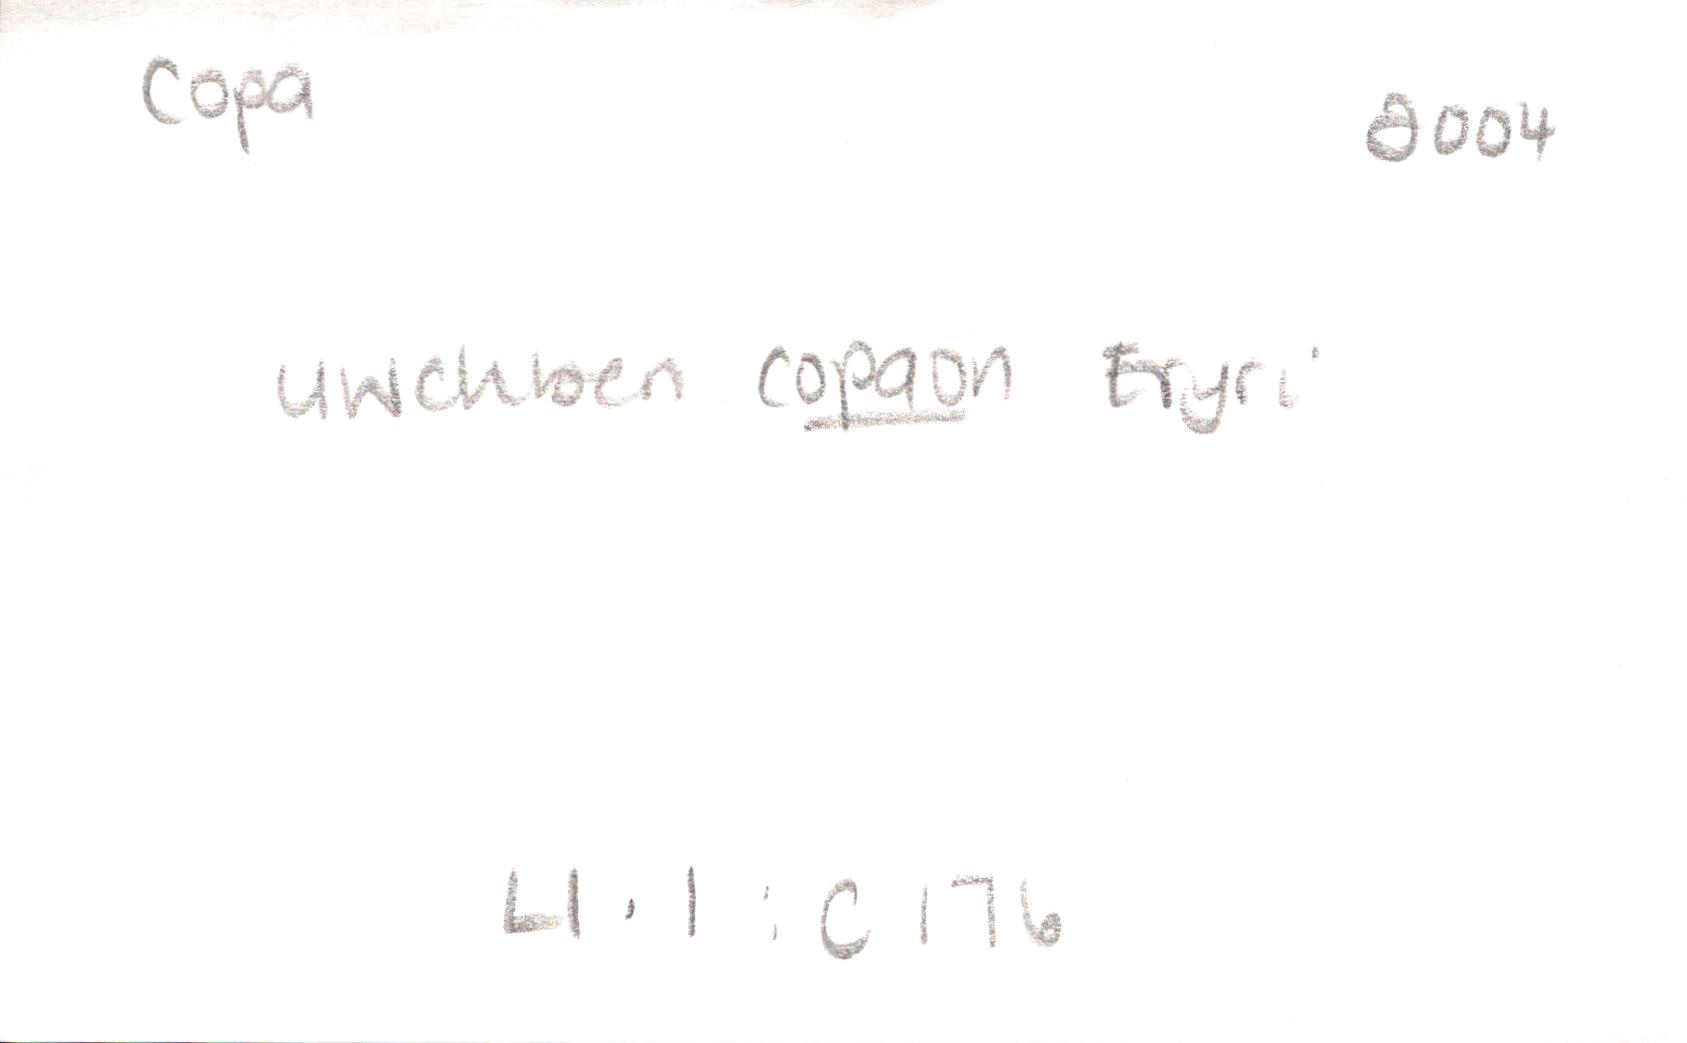 Copa 2004
uwchben copaon Eryri
Ll. 1 : C 176